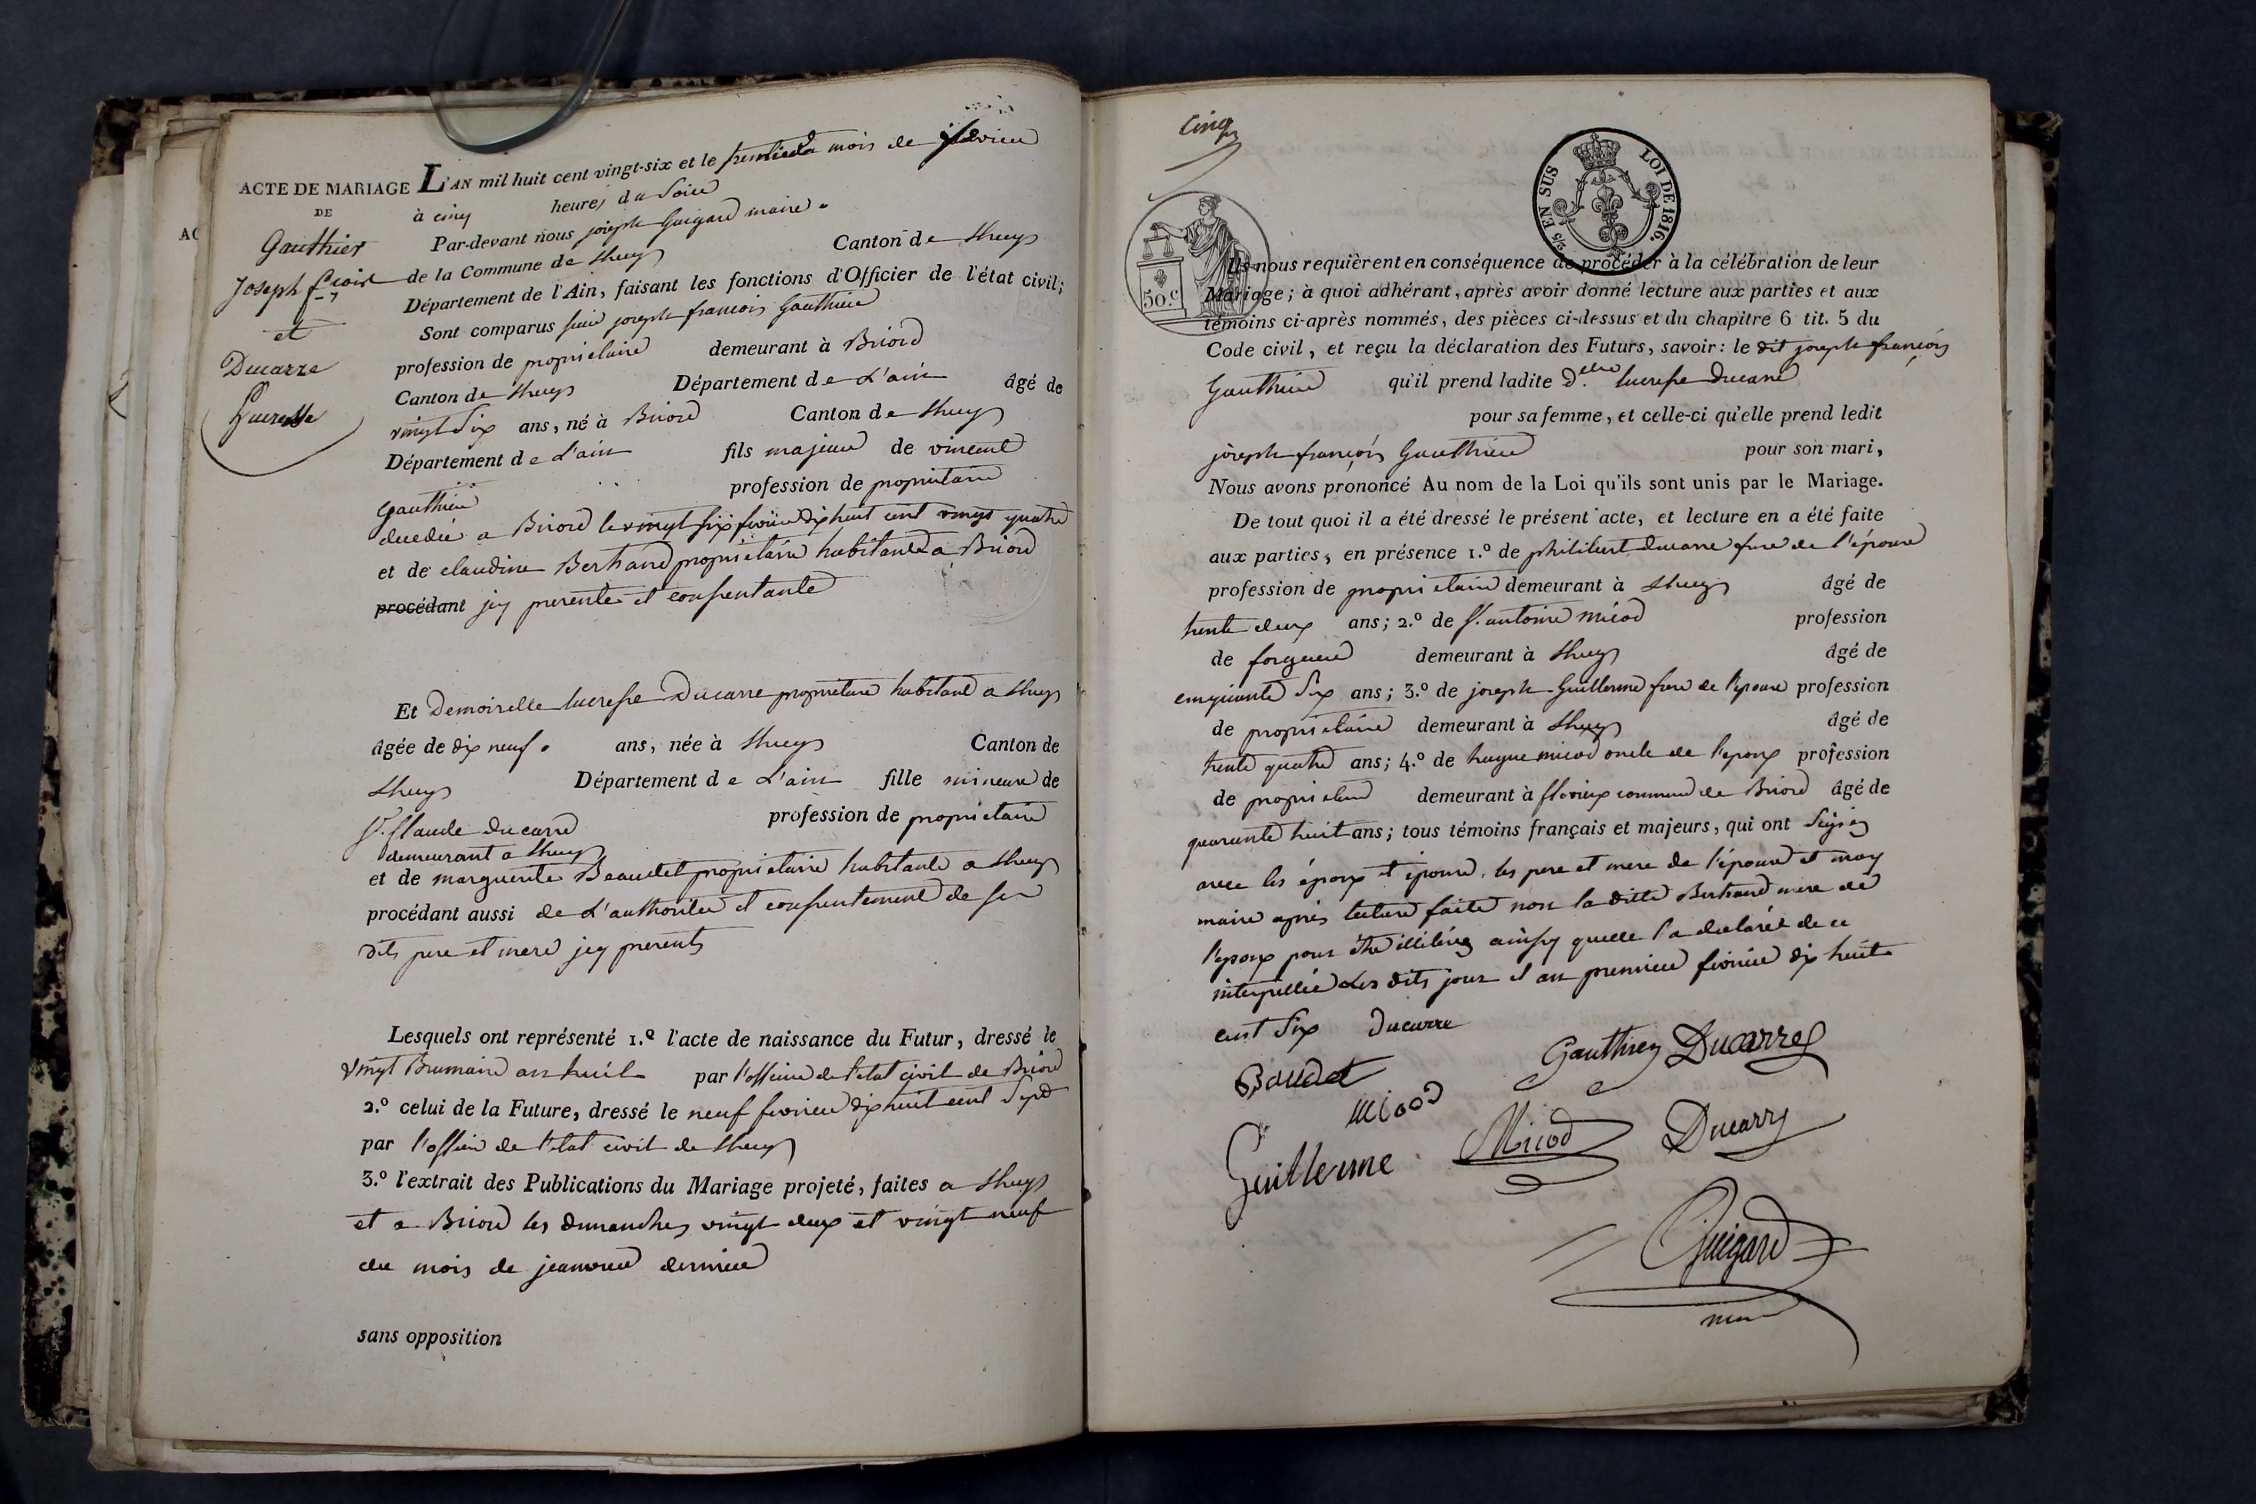 ACTE DE MARIAGE
DE
Gauthier
Joseph fçois
et
Ducarre
Lucresse
L'AN mil huit cent vingt-six et le premier du mois de fevrier
à cinq heures du Soir
Par-devant nous joseph Guigard maire
de la Commune de Lhuys Canton de Lhuys
Département de l'Ain, faisant les fonctions d'Officier de l'état civil;
Sont comparus sieur joseph françois Gauthier
profession de propriétaire demeurant à Briord
Canton de Lhuys Département de L'ain âgé de
vingt Six ans, né à Briord Canton de Lhuys
Département de L'ain fils majeur de vincent
Gauthier profession de propriétaire
decedé a Briord le vingt six fevrier dix huit cent vingt quatre
et de claudine Bertrand propriétaire habitante a Briord
procédant icy presente et consentante
Et Demoiselle lucresse Ducarre propriétaire habitant a Lhuys
âgée de dix neuf ans, née à Lhuys Canton de
Lhuys Département de L'ain fille mineure de
Sr. Claude Ducarre profession de propriétaire
demeurant a Lhuys
et de marguerite Beaudet propriétaire habitante a Lhuys
procédant aussi de L'authoritée et consentement de ses
dits pere et mere icy presents
Lesquels ont représenté 1.º l'acte de naissance du Futur, dressé le
vingt Brumaire an huit par l'officier de l'etat civil de Briord
2.º celui de la Future, dressé le neuf fevrier dix huit cent Sept
par l'officier de l'etat civil de Lhuys
3.º l'extrait des Publications du Mariage projeté, faites a Lhuys
et a Briord les dimanches vingt deux et vingt neuf
du mois de jeanvier dernier
sans opposition
Cinq
2/5 EN SUS LOI DE 1816.
50.c
Ils nous requièrent en conséquence de procéder à la célébration de leur
Mariage; à quoi adhérant, après avoir donné lecture aux parties et aux
témoins ci-après nommés, des pièces ci-dessus et du chapitre 6 tit. 5 du
Code civil, et reçu la déclaration des Futurs, savoir: le dit joseph françois
Gauthier qu'il prend ladite D.elle lucresse Ducarre
pour sa femme, et celle-ci qu'elle prend ledit
joseph françois Gauthier pour son mari,
Nous avons prononcé Au nom de la Loi qu'ils sont unis par le Mariage.
De tout quoi il a été dressé le présent acte, et lecture en a été faite
aux parties, en présence 1.º de philibert Ducarre frere de l'épouse
profession de propriétaire demeurant à Lhuys âgé de
trente deux ans; 2.º de Sr. antoine micod profession
de forgeur demeurant à Lhuys âgé de
cinquante Six ans; 3.º de joseph Guillerme frere de l'epouse profession
de propriétaire demeurant à Lhuys âgé de
trente quatre ans; 4.º de hugue micod oncle de l'epoux profession
de propriétaire demeurant à flevieux commune de Briord âgé de
quarante huit ans; tous témoins français et majeurs, qui ont Signés
avec les époux et épouse, les pere et mere de l'épouse et moy
maire après lecture faite non la ditte Bertrand mere de
l'epoux pour être illiterée ainsy quelle l'a declaré de ce
interpellée Les dits jour et an premier fevrier dix huit
cent Six Ducarre
Gauthier Ducarre
Baudet
micod
Micod Ducarre
Guillerme
Guigard
maire